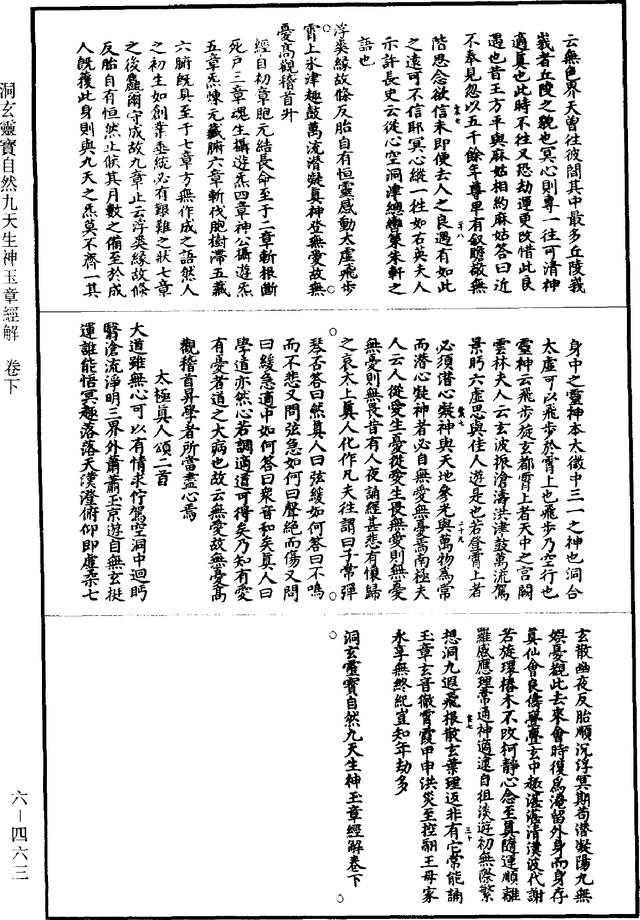 云無色界天曾往彼間其中最多丘陵峩
峩者丘陵之貌也冥心則專一往可清神
適真也此時不往又恐劫運更改惜此良
遇也昔王方平與麻姑相約麻姑答曰近
不奉見忽以五千餘年尊卑有叙瞻敬無
階思念欲信未即便去人之良遇有如此
之遠可不信耶冥心縱一往如右英夫人
示許長史云從心空洞津總轡策朱軒之
語也
浮爽緣故條反胎自有恒靈感動太虛飛步
霄上永津趣鼓萬流潛凝真神登無愛故無
憂高觀稽首昇
經自初章胞元結長命至于二章斬根斷
死户三章魂生攝遊炁四章神公攝遊炁
五章炁煉元藏腑六章斬伐胞樹滯五藏
六腑既具至于七章方無作成之語然人
之初生如創業垂統必有艱難之狀七章
之後蠢爾守成故九章止云浮爽緣故條
反胎自有恒然止候其月數之備至於成
人既獲此身則與九天之炁莫不齊一其
身中之靈神本太微中三一之神也洞合
太虛可以飛步於霄上也飛步乃空行也
靈神云飛步旋玄都霄上者天中之宫闕
雲林夫人云玄波振滄濤洪津鼓萬流駕
景眄六虛思與佳人遊是也若登霄上者
必須潛心凝神與天地參光與萬物爲常
而潛心凝神者必自無愛無憂焉南極夫
人云人從愛生憂從愛生畏無愛則無憂
無憂則無畏昔有人夜誦經甚悲有懷歸
之哀太上真人化作凡夫往謂曰子常彈
琴否答曰然真人曰弦緩如何答曰不鳴
而不悲又問弦急如何曰聲絶而傷又問
曰緩急適中如何答曰衆音和矣真人曰
學道亦然心若調適道可得矣乃知有愛
有憂者道之大病也故云無愛故無憂高
觀稽首昇學者所當盡心焉
太極真人頌二首
大道雖無心可以有情求佇駕空洞中迴眄
翳滄流淨明三界外蕭蕭玉京遊自無玄挺
運誰能悟冥趣落落天漢澄俯仰即虛柔七
玄散幽夜反胎順沉浮冥期苟潛凝陽九無
娛憂觀此去來會時復爲淹留外身而身存
真仙會良儔亹亹玄中趣湛湛清漢波代謝
若旋環椿木不改柯靜心念至真隨運順離
羅感應理常通神適逮自徂淡遊初無際繁
想洞九遐飛根散玄葉理返非有它常能誦
玉章玄音徹霄霞甲申洪災至控翮王母家
永享無終紀豈知年劫多
洞玄靈寶自然九天生神玉章經解卷下
洞玄靈寶自然九天生神玉章經解　卷下
六－四六三